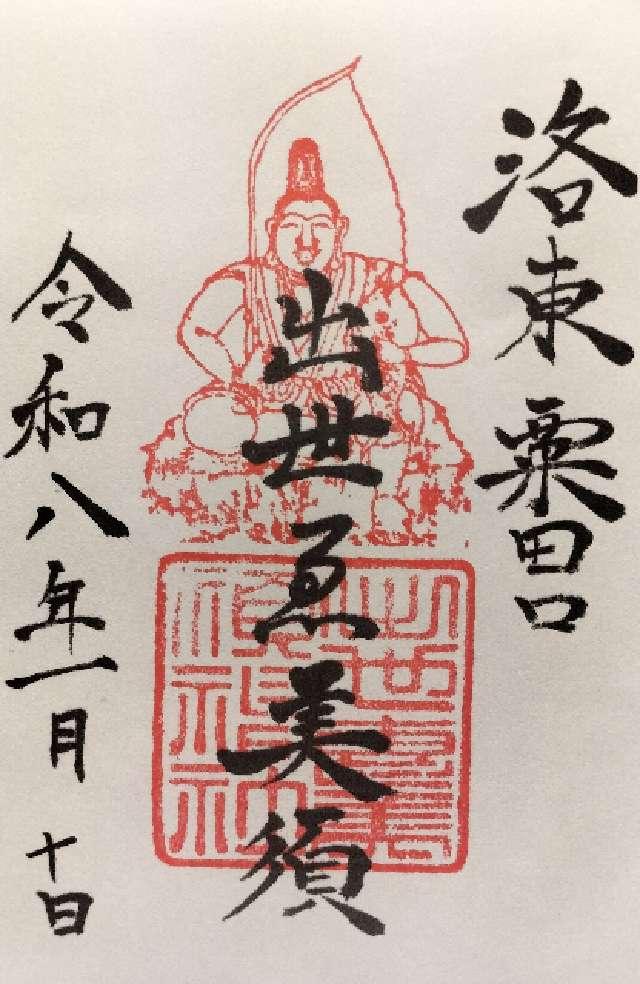 洛東粟田口
出世ゑ美須
令和八年一月十日